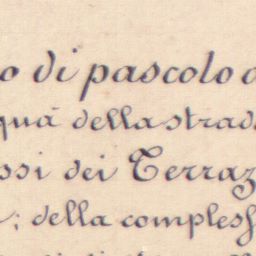 o di pascolo
qua della strad
ssi dei Terraz
; della compless